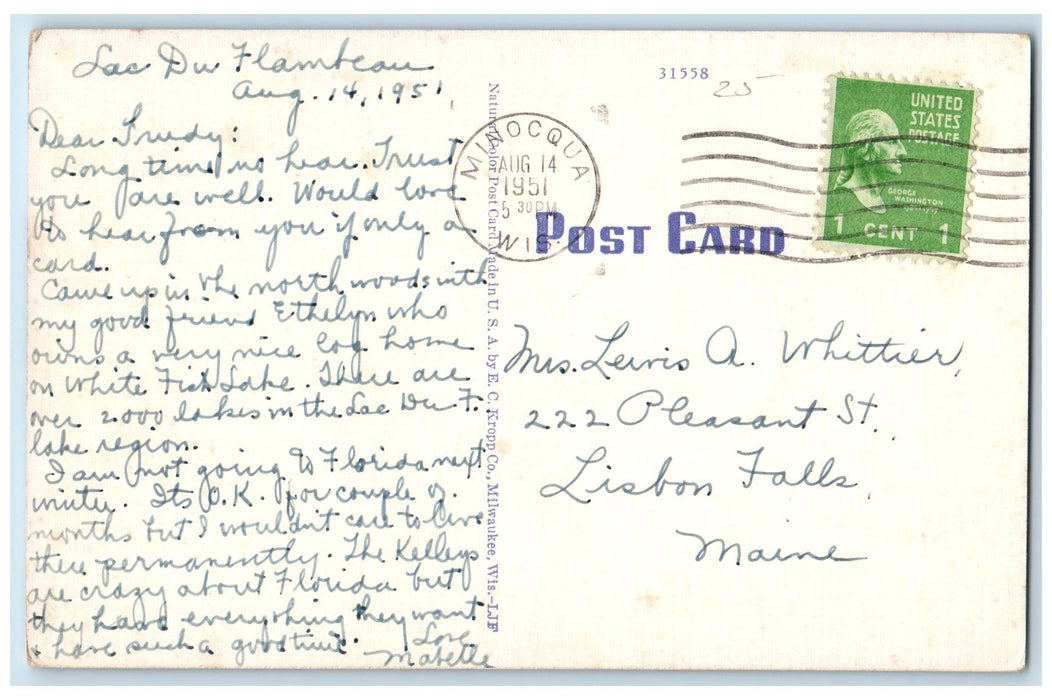 Lac Du Flambeau
Aug. 14, 1951
Dear Trudy:
Long time no hear. Trust
you are well. Would love
to hear from you if only a
card.
Came up in the north woods with
my good friend Ethelyn who
owns a very nice log home
on White Fish Lake. There are
over 2000 lakes in the Lac Du F.
lake region.
I am not going to Florida next
winter. Its O.K. for couple of
months but I wouldn't care to live
there permanently. The Kelleys
are crazy about Florida but
they have everything they want
& have such a good time.
Love
Mabelle
Natural Color Post Card Made in U. S. A. by E. C. Kropp Co., Milwaukee, Wis.-LJF
31558
25
MINOCQUA
AUG 14
1951
5 30 PM
WIS.
POST CARD
UNITED
STATES
POSTAGE
GEORGE
WASHINGTON
1 CENT 1
Mrs. Lewis A. Whittier,
222 Pleasant St.
Lisbon Falls,
Maine